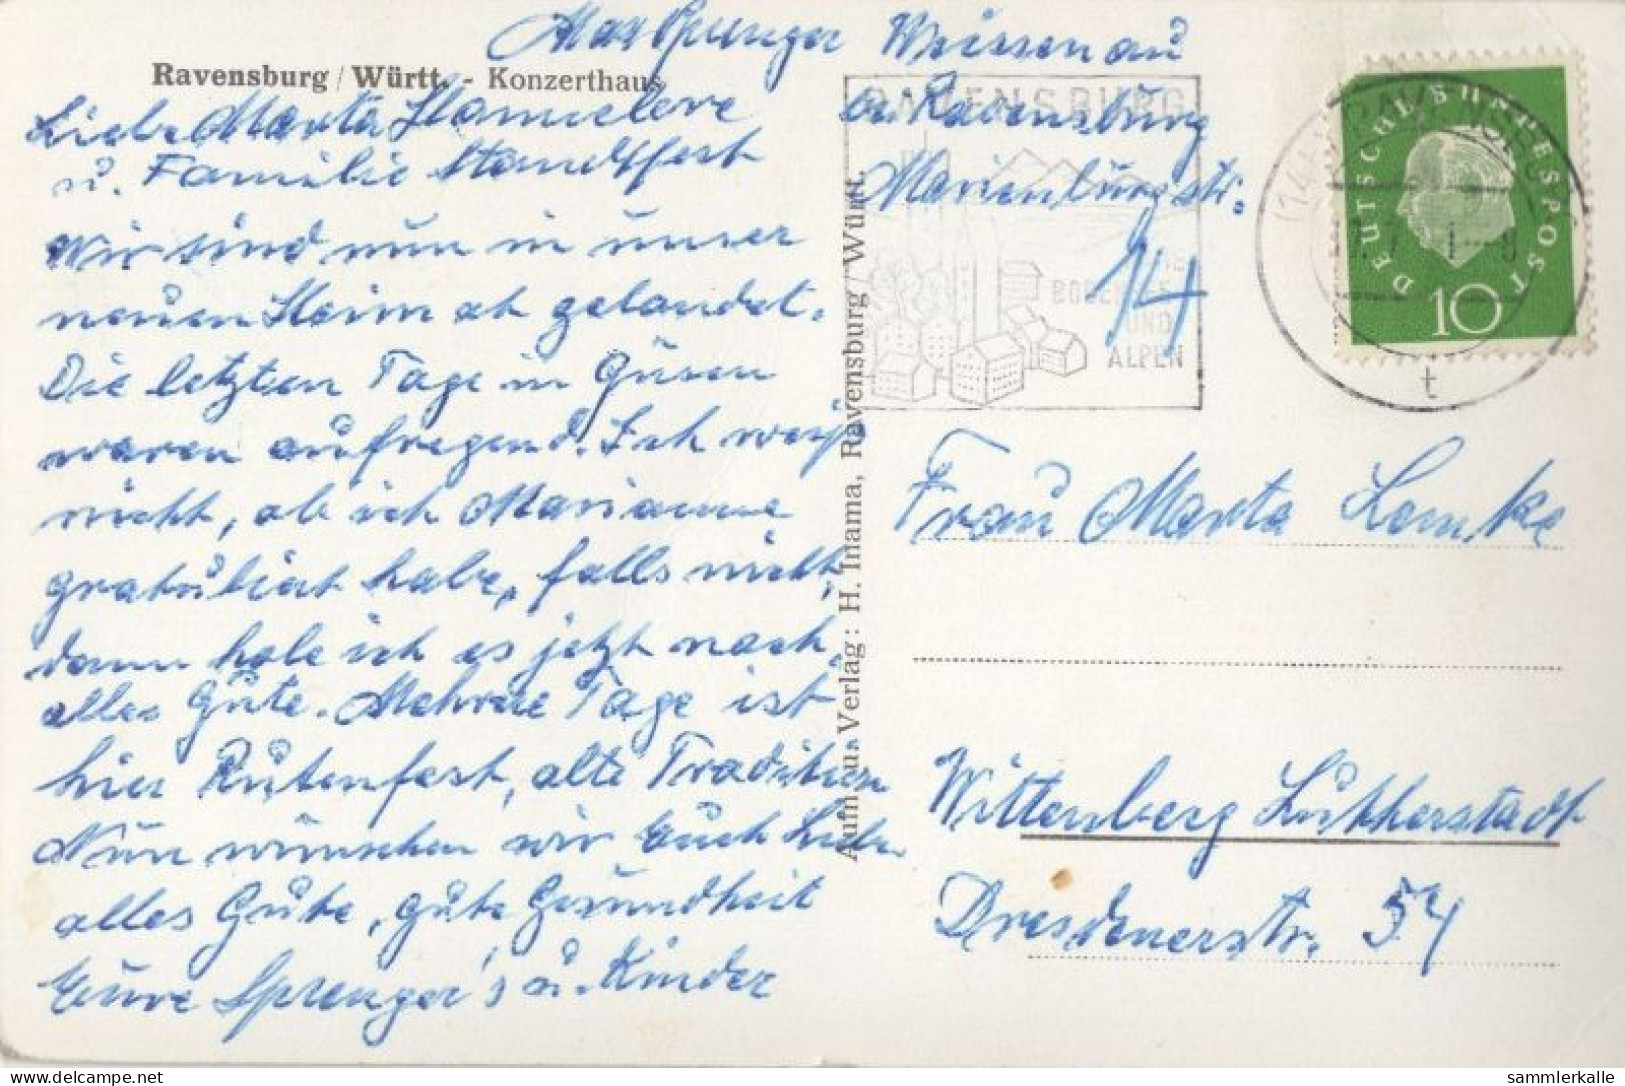 Max Sprenger Weissenau
bei Ravensburg
Marienburgstr.
14
Ravensburg / Württ. - Konzerthaus
Liebe Marta
u. Familie
Wir sind nun in unser
neuen Heim gelandet.
Die letzten Tage in Güsen
waren aufregend. Ich weiß
nicht, ob ich Marianne
gratuliert habe, falls nicht,
dann hole ich es jetzt nach,
alles Gute. Mehrere Tage ist
hier Rutenfest, alte Tradition
Nun wünschen wir Euch Lieben
alles Gute, gute Gesundheit
Eure Sprenger's u. Kinder
Aufn. u. Verlag: H. Inama, Ravensburg/Württ.
RAVENSBURG
BODENSEE
UND
ALPEN
DEUTSCHE BUNDESPOST
10
t
Frau Marta Lemke
Wittenberg Lutherstadt
Dresdenerstr. 54
DELCAMPE.NET
sammlerkalle